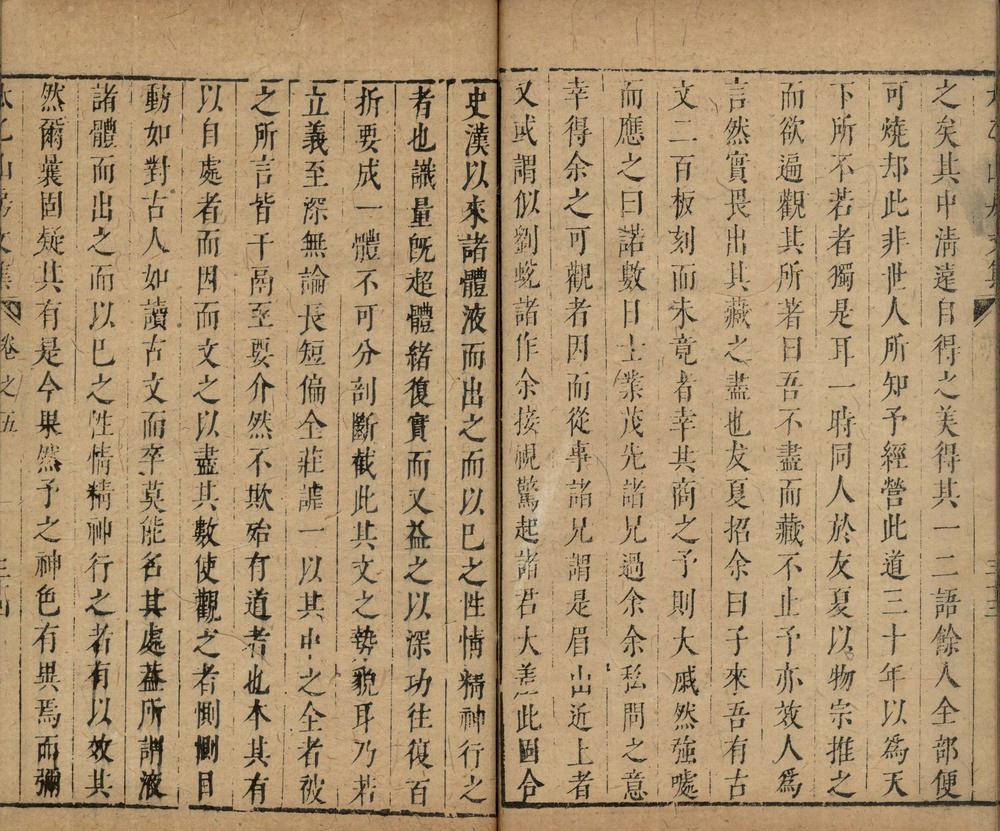 之矣其中淸違自得之美得其一二語餘人全部便
可燒却此非世人所知予經營此道三十年以爲天
下所不若者獨是耳一時同人於友夏以物宗推之
而欲遍觀其所著曰吾不盡而藏不止予亦效人爲
言然實畏出其藏之盡也友夏招余曰子來吾有古
文二百板刻而未竟者幸其商之予則大戚然強噓
而應之曰諾數日士業茂先諸兄過余余私問之意
幸得余之可觀者因而從事諸兄謂是眉山近上者
又或謂似劉蛻諸作余接視驚起諸君大善此固合
史漢以來諸體液而出之而以巳之性情精神行之
者也識量旣超體緒復實而又益之以深功往復百
折要成一體不可分剖斷截此其文之勢貌耳乃若
立義至深無論長短偏全莊謔一以其中之全者被
之所言皆干鬲至要介然不欺殆有道者也本其有
以自處者而因而文之以盡其數使觀之者惻惻目
動如對古人如讀古文而卒莫能名其處葢所謂液
諸體而出之而以巳之性情精神行之者有以效其
然爾曩固疑其有是今果然予之神色有異焉而彌
卷之五